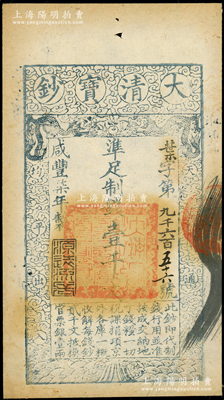 上海陽明拍賣
大清寶鈔
準足制錢壹千文
咸豐柒年製
字第九千六百五十六號
此鈔即代制
錢行用並准
按成交納地
丁錢糧一切
稅課捐項京
外各庫一概
收解每錢鈔
貳千文抵換
官票銀壹兩
天下通
平出